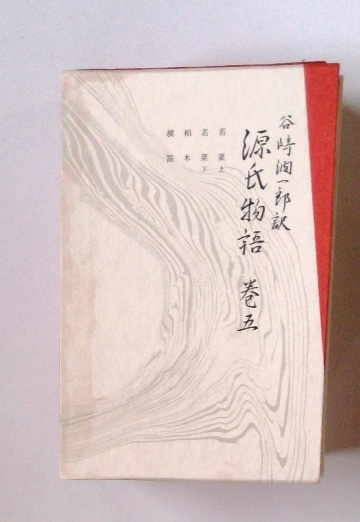 谷崎潤一郎訳
源氏物語 巻五
若菜上
若菜下
柏木
横笛